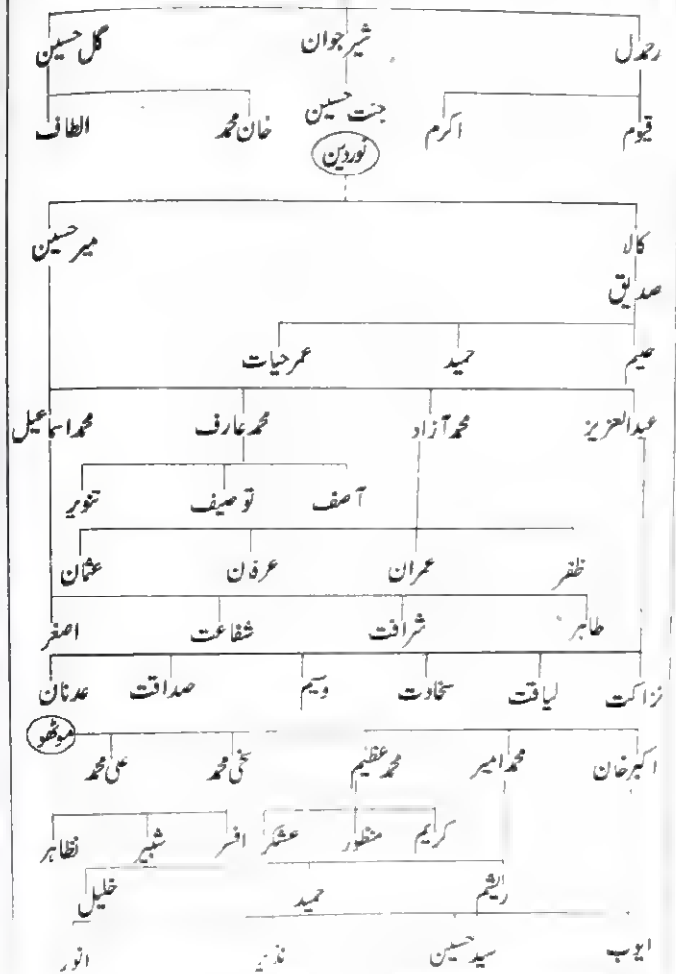 رحمدل شیر جوان گل حسین
قیوم اکرم جنت حسین خان محمد الطاف
نوردین
کالا میر حسین
صدیق
حمید عمر حیات
عبدالعزیز محمد آزاد محمد عارف محمد اسماعیل
آصف توصیف تنویر
ظفر عمران عرفان عثمان
طاہر شرافت شفاعت اصغر
نزاکت لیاقت سخاوت وسیم صداقت عدنان
موٹھو
اکبر خان محمد امیر محمد عظیم سخی محمد علی محمد
کریم منظور افسر شبیر
ریشم حمید خلیل
ایوب سید حسین نذیر انور